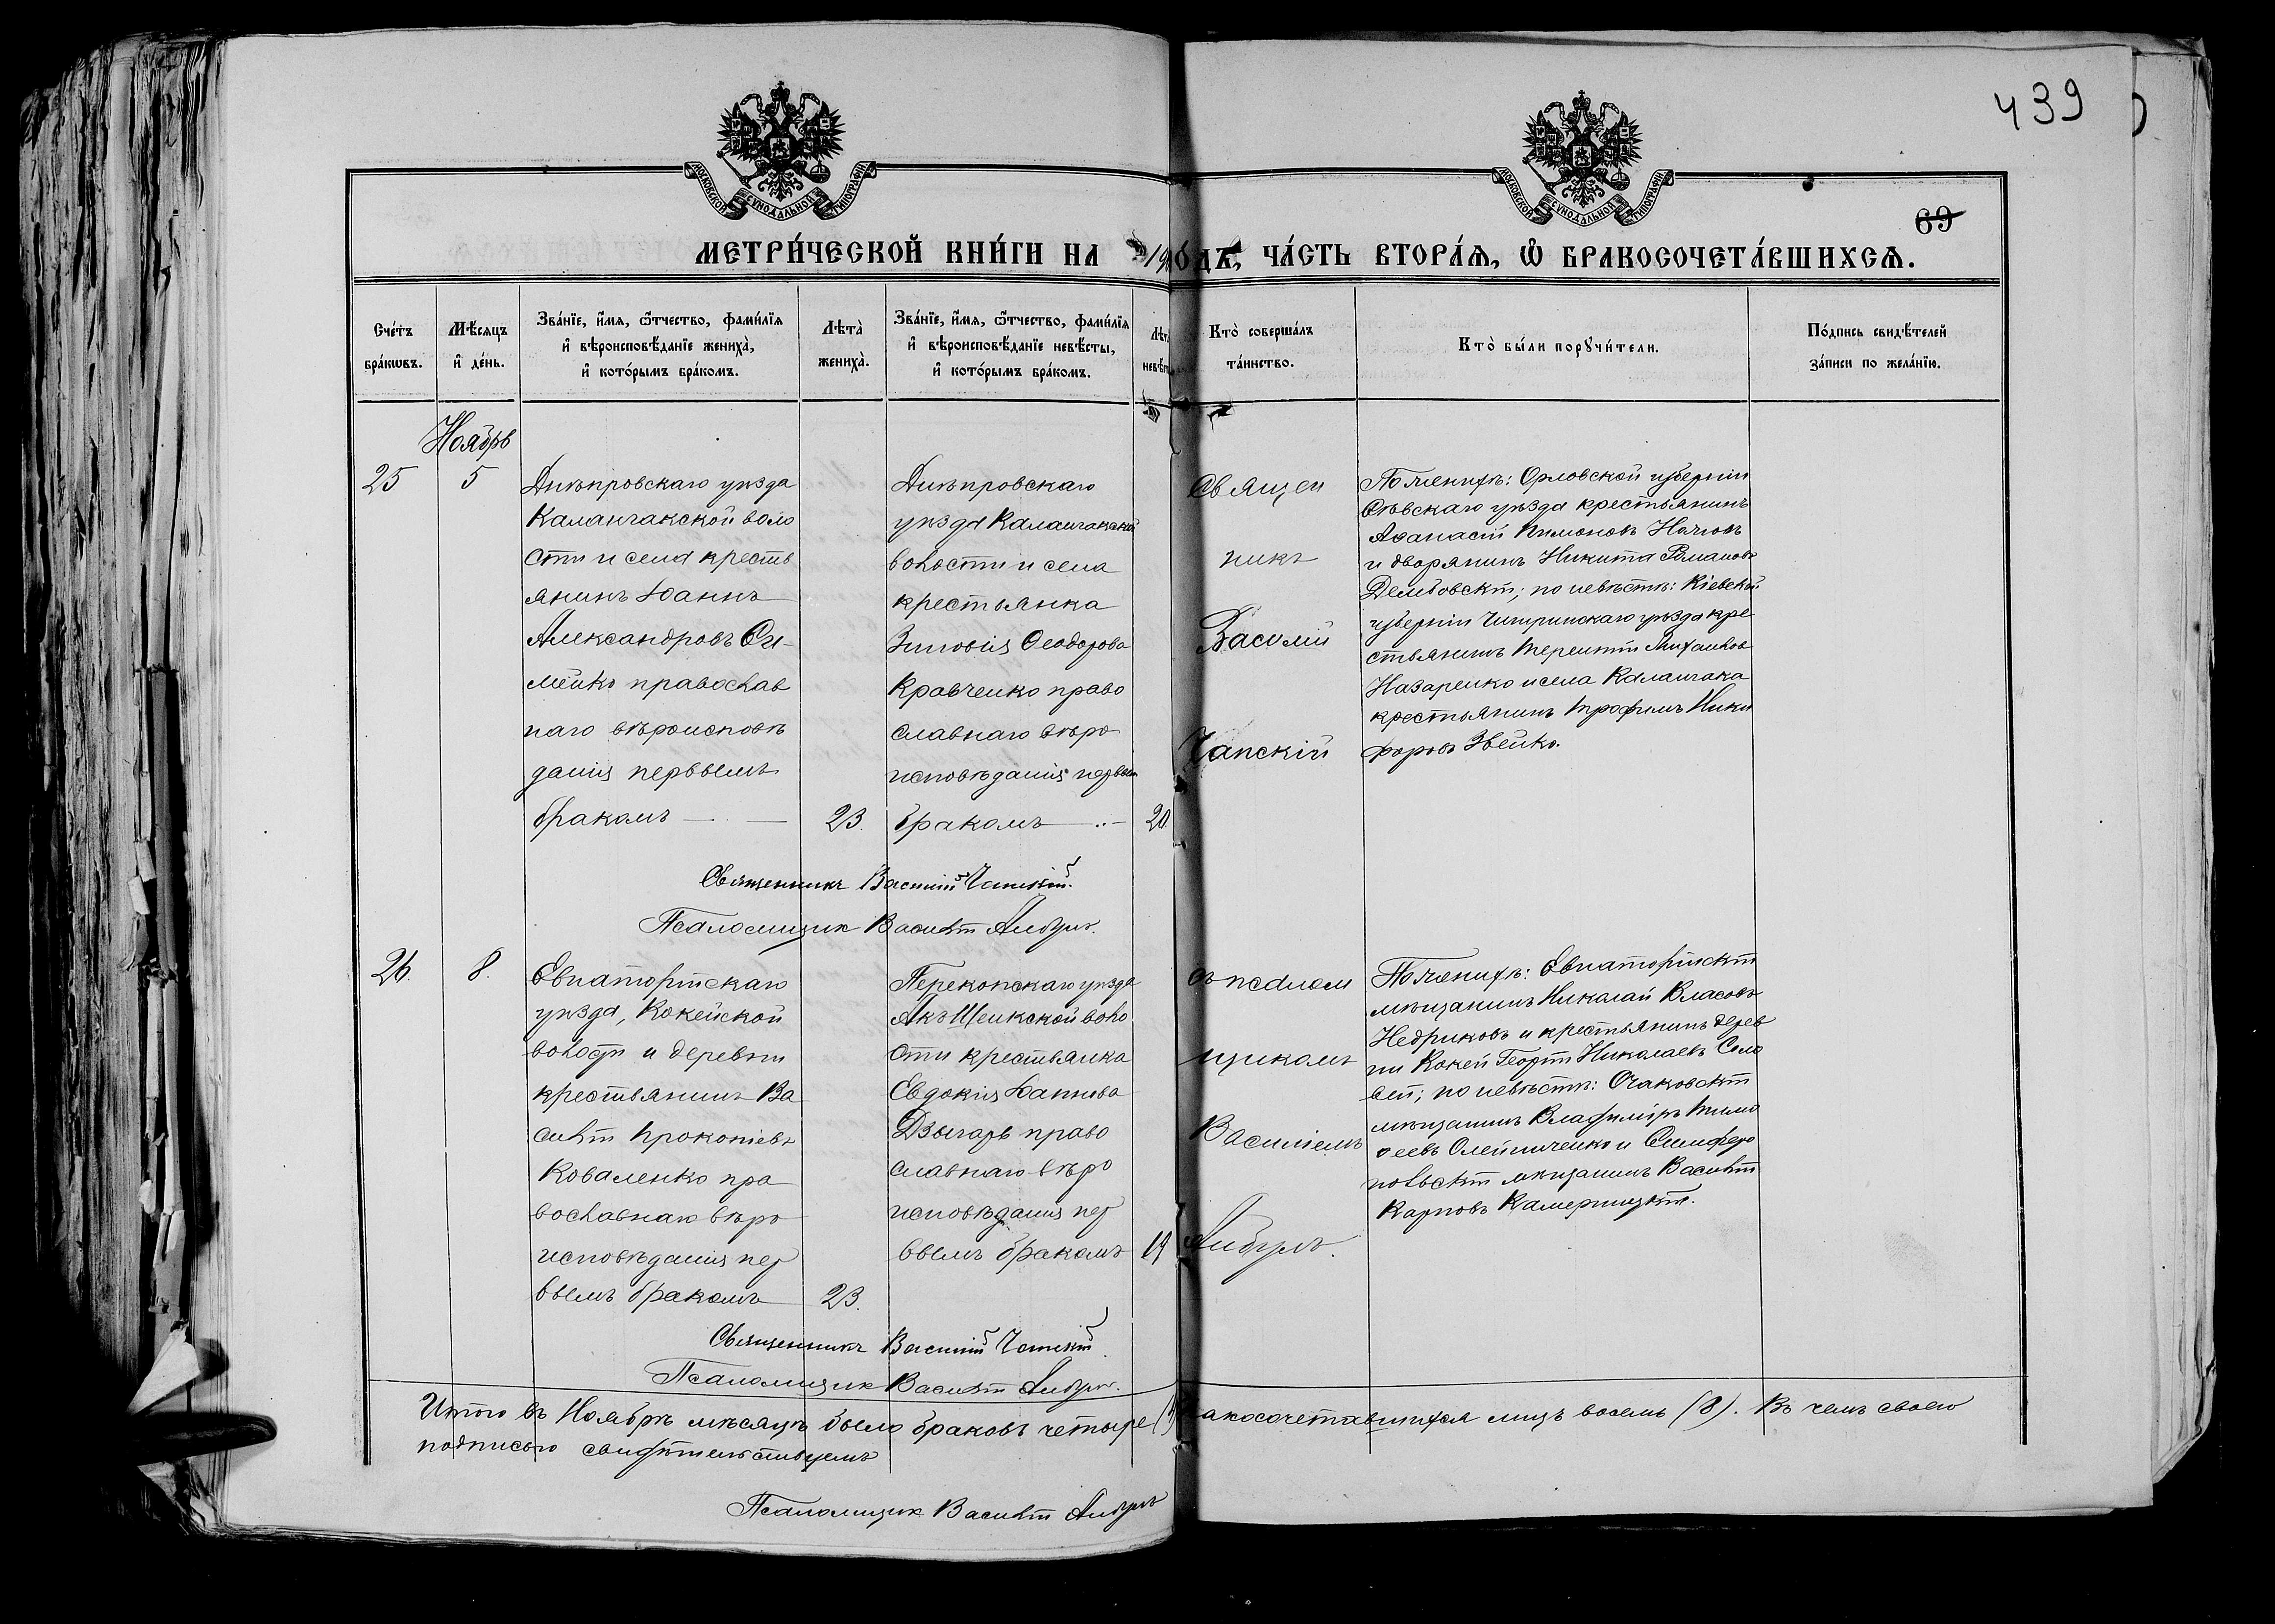 439
69
МОСКОВСКОЙ СѴНОДАЛЬНОЙ ТИПОГРАФІИ
МОСКОВСКОЙ СѴНОДАЛЬНОЙ ТИПОГРАФІИ
МЕТРИ́ЧЕСКОЙ КНИ́ГИ НА 19 ГО́ДЪ, ЧА́СТЬ ВТОРА́Ѧ, Ѽ БРАКОСОЧЕТА́ВШИХСѦ.
Сче́тъ
бра́кѡвъ.
Мѣ́сяцъ
и҆ де́нь.
Зва́нїе, и҆́мя, ѻ҆́тчество, фами́лїя
и҆ вѣроисповѣ́данїе жениха̀,
и҆ кото́рымъ бра́комъ.
Лѣта̀
жениха̀.
Зва́нїе, и҆́мя, ѻ҆́тчество, фами́лїя
и҆ вѣроисповѣ́данїе невѣ́сты,
и҆ кото́рымъ бра́комъ.
Лѣт
невѣс
Кто̀ соверша́лъ
та́инство.
Кто̀ бы́ли порꙋчи́тели.
По́дпись свидѣ́телей
за́писи по жела́нїю.
Ноябрь
25
5
Днѣпровскаго уѣзда
Каланчакской воло
сти и села кресть
янинъ Іоаннъ
Александровъ
мейко православ
наго вѣроисповѣ
данія первымъ
бракомъ
23.
Днѣпровскаго
уѣзда Каланчакской
волости и села
крестьянка
Зиновія Ѳеодорова
Кравченко право
славнаго вѣро
исповѣданія первым
бракомъ
20
Священ
никъ
Василій
Чапскій
По женихѣ: Орловской губерніи
Сѣвскаго уѣзда крестьянинъ
Аѳанасій Пимоновъ
и дворянинъ Никита Романовъ
по невѣстѣ: Кіевской
губерніи Чигиринскаго уѣзда кре
стьянинъ Терентій Михаиловъ
Назаренко и села Каланчака
крестьянинъ Трофимъ Ники
форовъ Звейко.
Священникъ Василій Чапскій.
Псаломщик Василій
26.
8.
Евпаторійскаго
уѣзда, Кокейской
волости и деревни
крестьянинъ Ва
силій Прокопіевъ
Коваленко пра
вославнаго вѣро
исповѣданія пер
вымъ бракомъ
23.
Перекопскаго уѣзда
Акъ Шеикской воло
сти крестьянка
Евдокія Іаннова
Дзыгарь право
славнаго вѣро
исповѣданія пер
вымъ бракомъ
19
съ псалом
щикомъ
Василіемъ
По женихѣ: Евпаторійскій
мѣщанинъ Николай Власовъ
Недриковъ и крестьянинъ дерев
ни Кокей Георгій Николаевъ Соло
вей; по невѣстѣ: Очаковскій
мѣщанинъ Владиміръ Тимо
ѳеевъ Олейниченко и Симферо
польскій мѣщанинъ Василій
Карповъ Камерницкій.
Священникъ Василій Чапскій
Псаломщик Василій
Итого въ Ноябрѣ мѣсяцѣ было браковъ четыре (4) акосочетавшихся лицъ восемь (8). Въ чемъ своею
подписью свидѣтельствуемъ
Псаломщик Василій